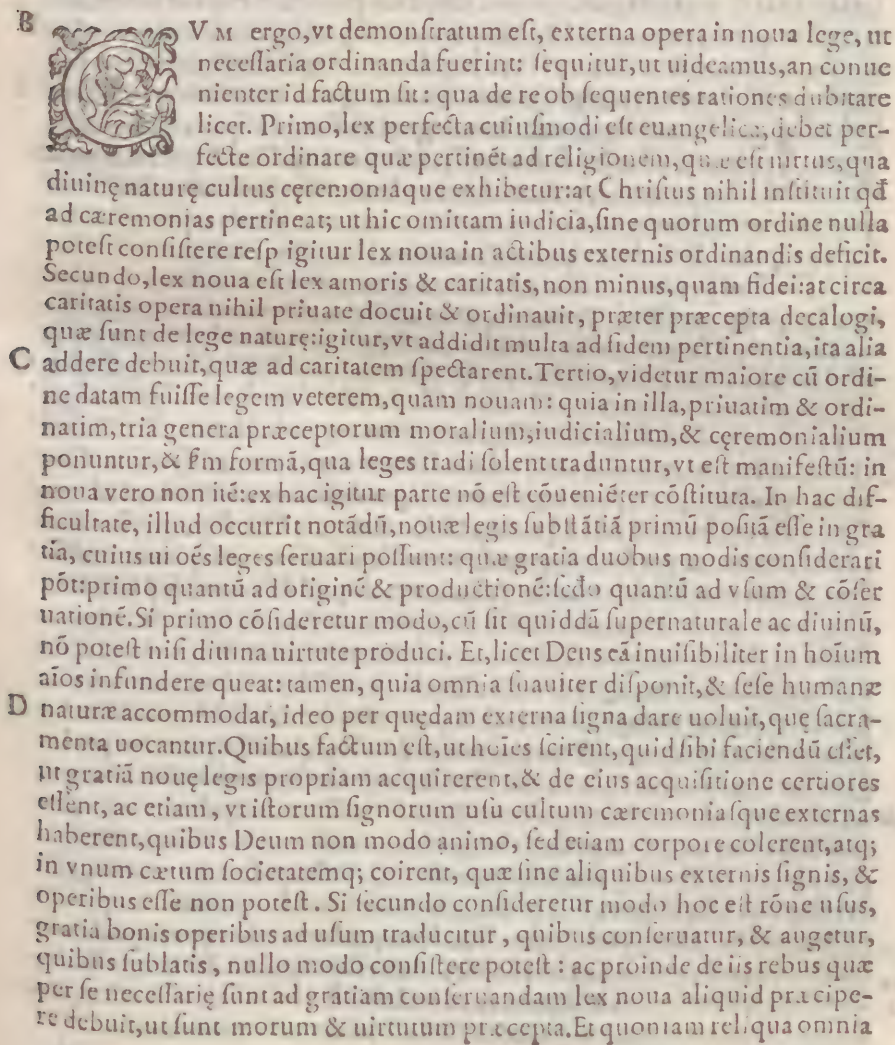 B CVM ergo,vt demonſtratum eſt, externa opera in noua lege, ut
neceſſaria ordinanda fuerint: ſequitur,ut uideamus,an conue
nienter id factum ſit: qua de re ob ſequentes rationes dubitare
licet. Primo,lex perfecta cuiuſmodi eſt euangelica,debet per-
fecte ordinare quæ pertinét ad religionem,quæ eſt uirtus,qua
diuinę naturę cultus cęremoniaque exhibetur:at Chriſtus nihil inſtituit qđ
ad cæremonias pertineat; ut hic omittam iudicia,ſine quorum ordine nulla
poteſt conſiſtere reſp igitur lex noua in actibus externis ordinandis deficit.
Secundo,lex noua eſt lex amoris & caritatis,non minus,quam fidei:at circa
caritatis opera nihil priuate docuit & ordinauit, præter præcepta decalogi,
quæ ſunt de lege naturę:igitur,vt addidit multa ad fidem pertinentia,ita alia
C addere debuit,quæ ad caritatem ſpectarent.Tertio,videtur maiore cū ordi-
ne datam fuiſſe legem veterem,quam nouam: quia in illa,priuatim & ordi-
natim,tria genera præceptorum moralium,iudicialium,& cęremonialium
ponuntur,& ſm formā,qua leges tradi ſolent traduntur,vt eſt manifeſtū: in
noua vero non ité:ex hac igitur parte nō eſt cōueniéter cōſtituta. In hac dif-
ficultate, illud occurrit notādū,nouæ legis ſubſtātiā primū poſitā eſſe in gra
tia, cuius ui oēs leges ſeruari poſſunt: quæ gratia duobus modis conſiderari
pōt:primo quantū ad originé & productioné:ſeđo quantū ad vſum & cōſer
uationé.Si primo cōſideretur modo,cū ſit quiddā ſupernaturale ac diuinū,
nō poteſt niſi diuina uirtute produci. Et,licet Deus eā inuiſibiliter in hoīum
aīos infundere queat: tamen, quia omnia ſuauiter diſponit,& ſeſe humanæ
D naturæ accommodat, ideo per quędam externa ſigna dare uoluit,quę ſacra-
menta uocantur.Quibus factum eſt,ut hoīes ſcirent,quid ſibi faciendū eſſet,
ut gratiā nouę legis propriam acquirerent,& de eius acquiſitione certiores
eſſent, ac etiam, vt iſtorum ſignorum uſu cultum cæremoniaſque externas
haberent,quibus Deum non modo animo, ſed etiam corpore colerent,atq;
in vnum cætum ſocietatemq; coirent, quæ ſine aliquibus externis ſignis, &
operibus eſſe non poteſt. Si ſecundo conſideretur modo hoc eſt rōne uſus,
gratia bonis operibus ad uſum traducitur, quibus conſeruatur, & augetur,
quibus ſublatis, nullo modo conſiſtere poteſt: ac proinde de iis rebus quæ
per ſe neceſſarię ſunt ad gratiam conſeruandam lex noua aliquid præcipe-
re debuit,ut ſunt morum & uirtutum præcepta.Et quoniam reliqua omnia